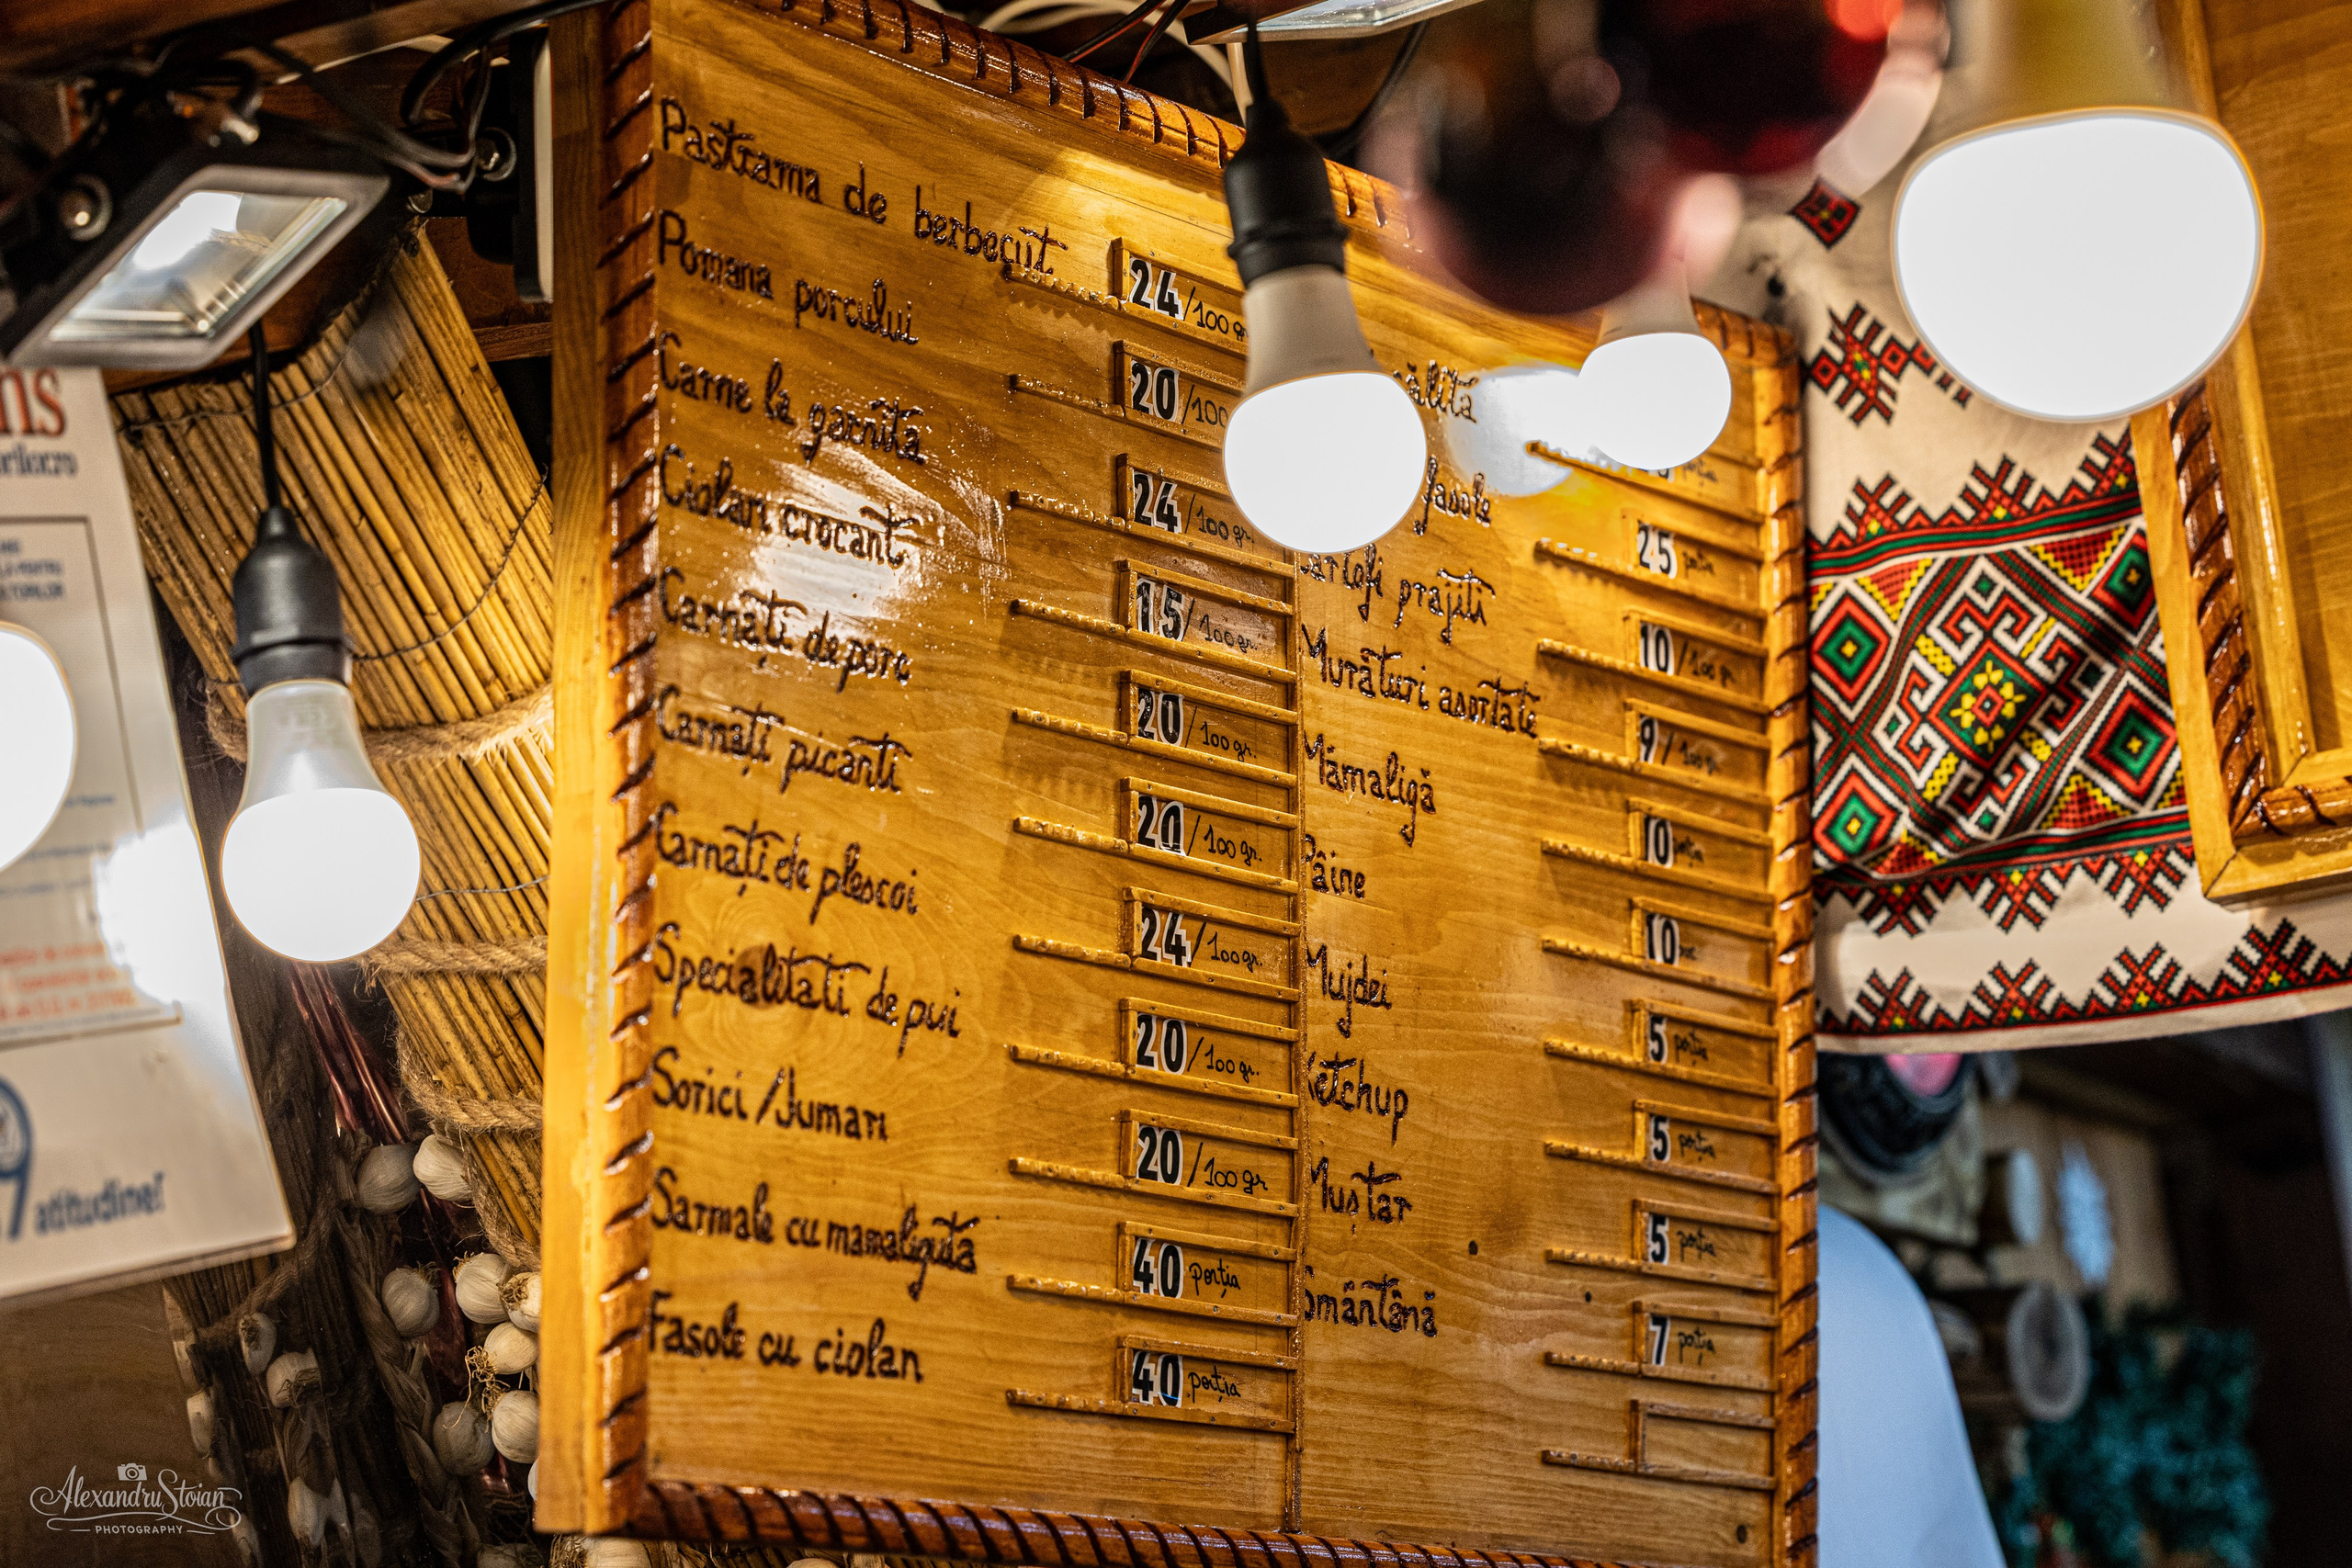 Pastrama de berbecuț 24/100 gr
Pomana porcului 20/100
Carne la garnița 24/100 gr.
Ciolan crocant 15/100 gr.
Carnați de porc 20/100 gr.
Carnați picanti 20/100 gr.
Carnați de plescoi 24/100 gr.
Specialitati de pui 20/100 gr.
Sorici /Jumari 20/100 gr
Sarmale cu mamaliguta 40 porția
Fasole cu ciolan 40 porția
porția
fasole 25 porția
prajiti 10/100 gr.
Murături asortate 9/100 gr.
Mămaligă 10 porția
Pâine 10
Mujdei 5 porția
Ketchup 5 porția
Muștar 5 porția
Smântână 7 porția
atitudine!
Alexandru Stoian
PHOTOGRAPHY